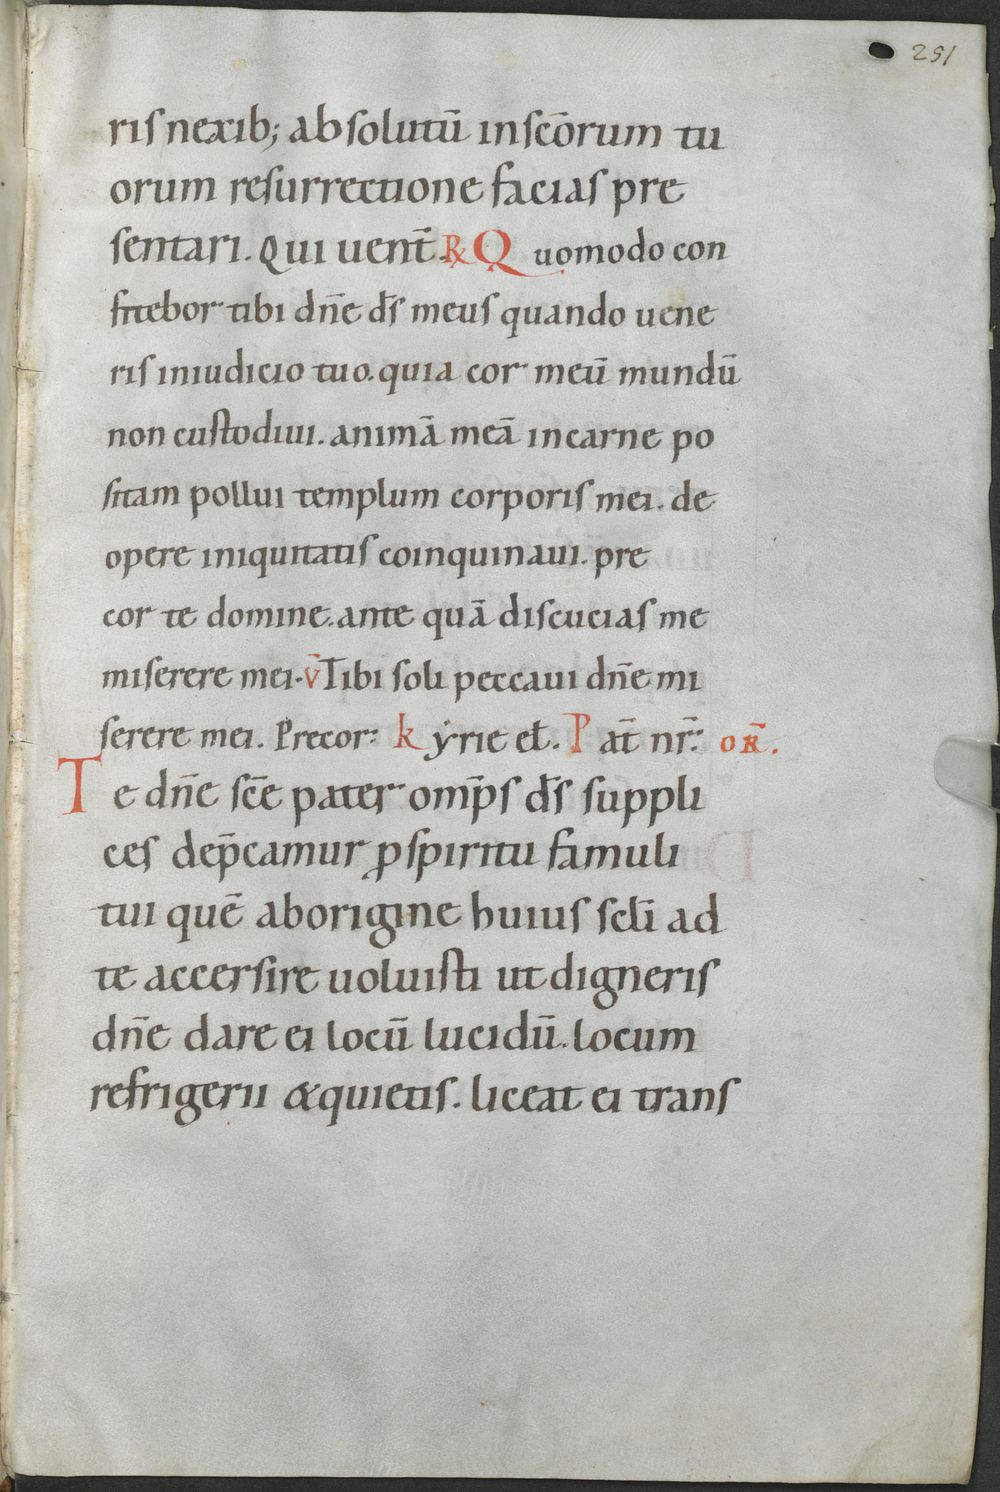 251
ris nexib; absolutū in sc̄orum tu
orum resurrectione facias pre
sentari. Qui uent̄. R̷ Quomodo con
fitebor tibi dn̄e d̄s meus quando uene
ris in iudicio tuo. quia cor meū mundū
non custodiui. animā meā in carne po
sitam pollui templum corporis mei. de
opere iniquitatis coinquinaui. pre
cor te domine. ante quā discucias me
miserere mei. v̄ Tibi soli peccaui dn̄e mi
serere mei. Precor: kyrie el̄. Pat̄ nr̄: or̄.
Te dn̄e sc̄e pater omp̄s d̄s suppli
ces dep̄camur ꝓ spiritu famuli
tui quē ab origine huius scl̄i ad
te accersire uoluisti ut digneris
dn̄e dare ei locū lucidū. locum
refrigerii & quietis. liceat ei trans